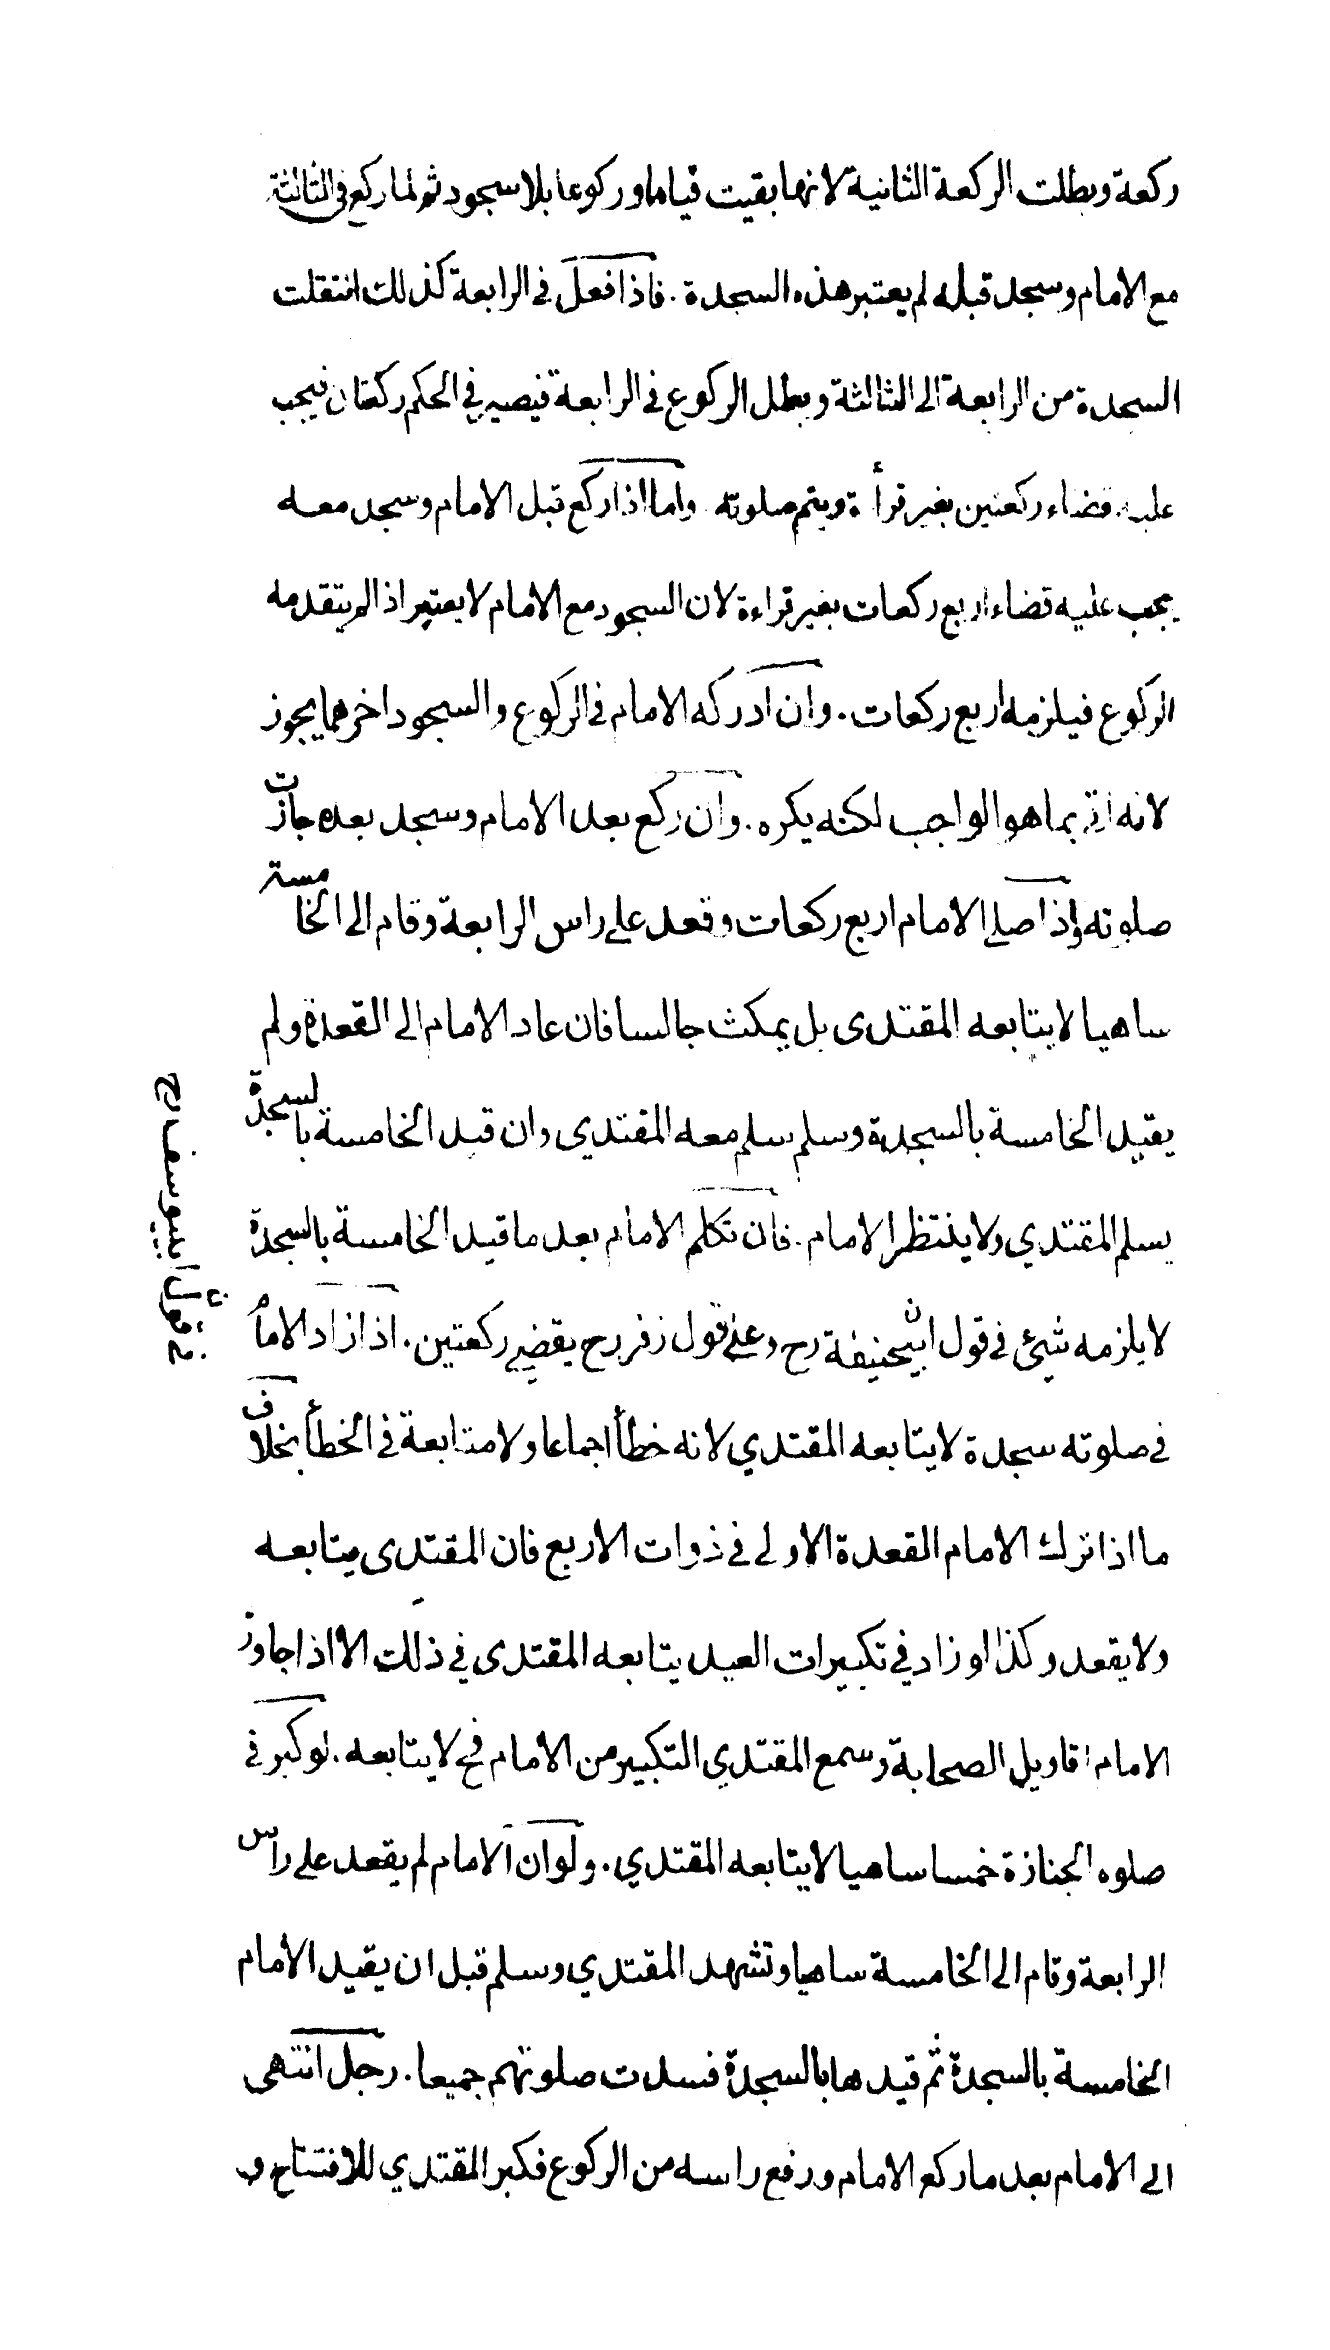 ركعة وبطلت الركعة الثانية لانها بقيت قياما وركوعا بلا سجود ثم لما ركع في الثالثة
مع الامام وسجد قبله لم يعتبر هذه السجدة . فاذا فعل في الرابعة كذلك انتقلت
السجدة من الرابعة الى الثالثة وبطل الركوع في الرابعة فيصير في الحكم ركعتان فيجب
عليه قضاء ركعتين بغير قرأة ويتم صلوته واما اذا ركع قبل الامام وسجد معه
يجب عليه قضاء اربع ركعات بغير قراءة لان السجود مع الامام لا يعتبر اذا لم يتقدمه
الركوع فيلزمه اربع ركعات . وان ادركه الامام في الركوع والسجود اخرهما يجوز
لانه اتى بما هو الواجب لكنه يكره . وان ركع بعد الامام وسجد بعده جازت
صلوته واذا صلى الامام اربع ركعات وقعد على راس الرابعة وقام الى الخامسة
ساهيا لا يتابعه المقتدى بل يمكث جالسا فان عاد الامام الى القعدة ولم
يقيد الخامسة بالسجدة وسلم سلم معه المقتدي وان قيد الخامسة بالسجدة
يسلم المقتدي ولا ينتظر الامام . فان تكلم الامام بعد ما قيد الخامسة بالسجدة
لا يلزمه شيئ في قول ابيحنيفة رح وعلى قول زفر رح يقضي ركعتين . اذا زاد الامام
في صلوته سجدة لا يتابعه المقتدي لانه خطأ اجماعا ولا متابعة في الخطأ بخلاف
ما اذا ترك الامام القعدة الاولى في ذوات الاربع فان المقتدى يتابعه
ولا يقعد وكذا لو زاد في تكبيرات العيد يتابعه المقتدى في ذلك الا اذا جاوز
الامام اقاويل الصحابة وسمع المقتدي التكبير من الامام فح لا يتابعه . لو كبر في
صلوه الجنازة خمسا ساهيا لا يتابعه المقتدي . ولو ان الامام لم يقعد على راس
الرابعة وقام الى الخامسة ساهيا وتشهد المقتدي وسلم قبل ان يقيد الامام
الخامسة بالسجدة ثم قيدها بالسجدة فسدت صلوتهم جميعا . رجل انتهى
الى الامام بعد ما ركع الامام ورفع راسه من الركوع فكبر المقتدي للافتتاح و
قول ابيوسف رح